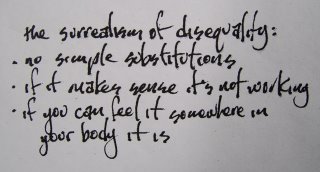 the surrealism of disequality:
· no simple substitutions
· if it makes sense it's not working
· if you can feel it somewhere in
your body it is